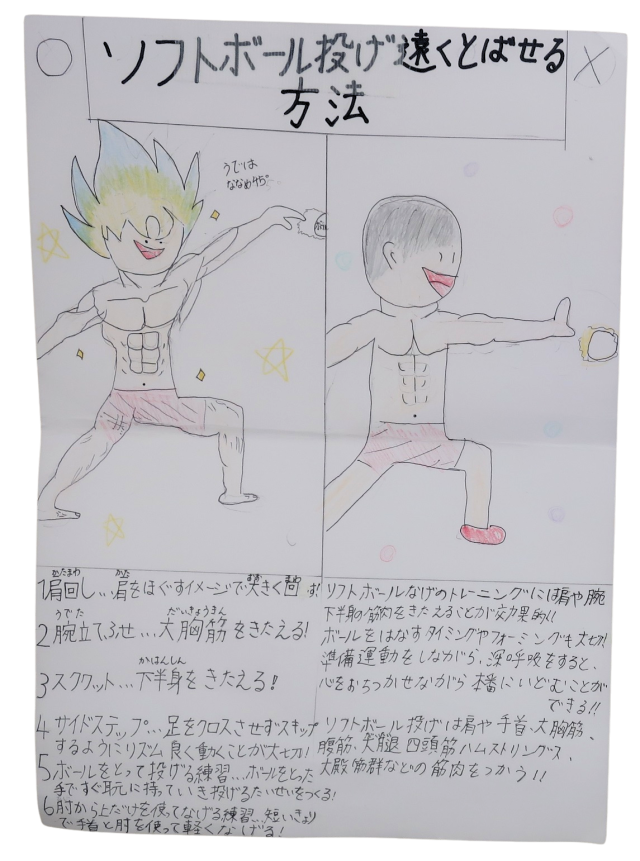 ソフトボール投げ遠くとばせる
方法
うでは
ななめ45°
1肩回し…肩をほぐすイメージで大きく回す!
かたまわ
かた
おお
まわ
2腕立てふせ…大胸筋をきたえる!
うでた
だいきょうきん
3スクワット…下半身をきたえる!!
かはんしん
4サイドステップ…足をクロスさせずスキップ
するようにリズム良く動くことが大切!!
5ボールをとって投げる練習…ボールをとった
手ですぐ耳元に持っていき投げるたいせいをつくる!
6肘から上だけを使ってなげる練習…短いきょり
で手首と肘を使って軽くなげる!
ソフトボールなげのトレーニングには肩や腕
下半身の筋肉をきたえることが効果的!!
ボールをはなすタイミングやフォーミングも大切!
準備運動をしながら、深呼吸をすると、
心をおちつかせながら本番にいどむことが
できる!!
ソフトボール投げは肩や手首、大胸筋、
腹筋、大腿四頭筋ハムストリングス、
大殿筋群などの筋肉をつかう!!